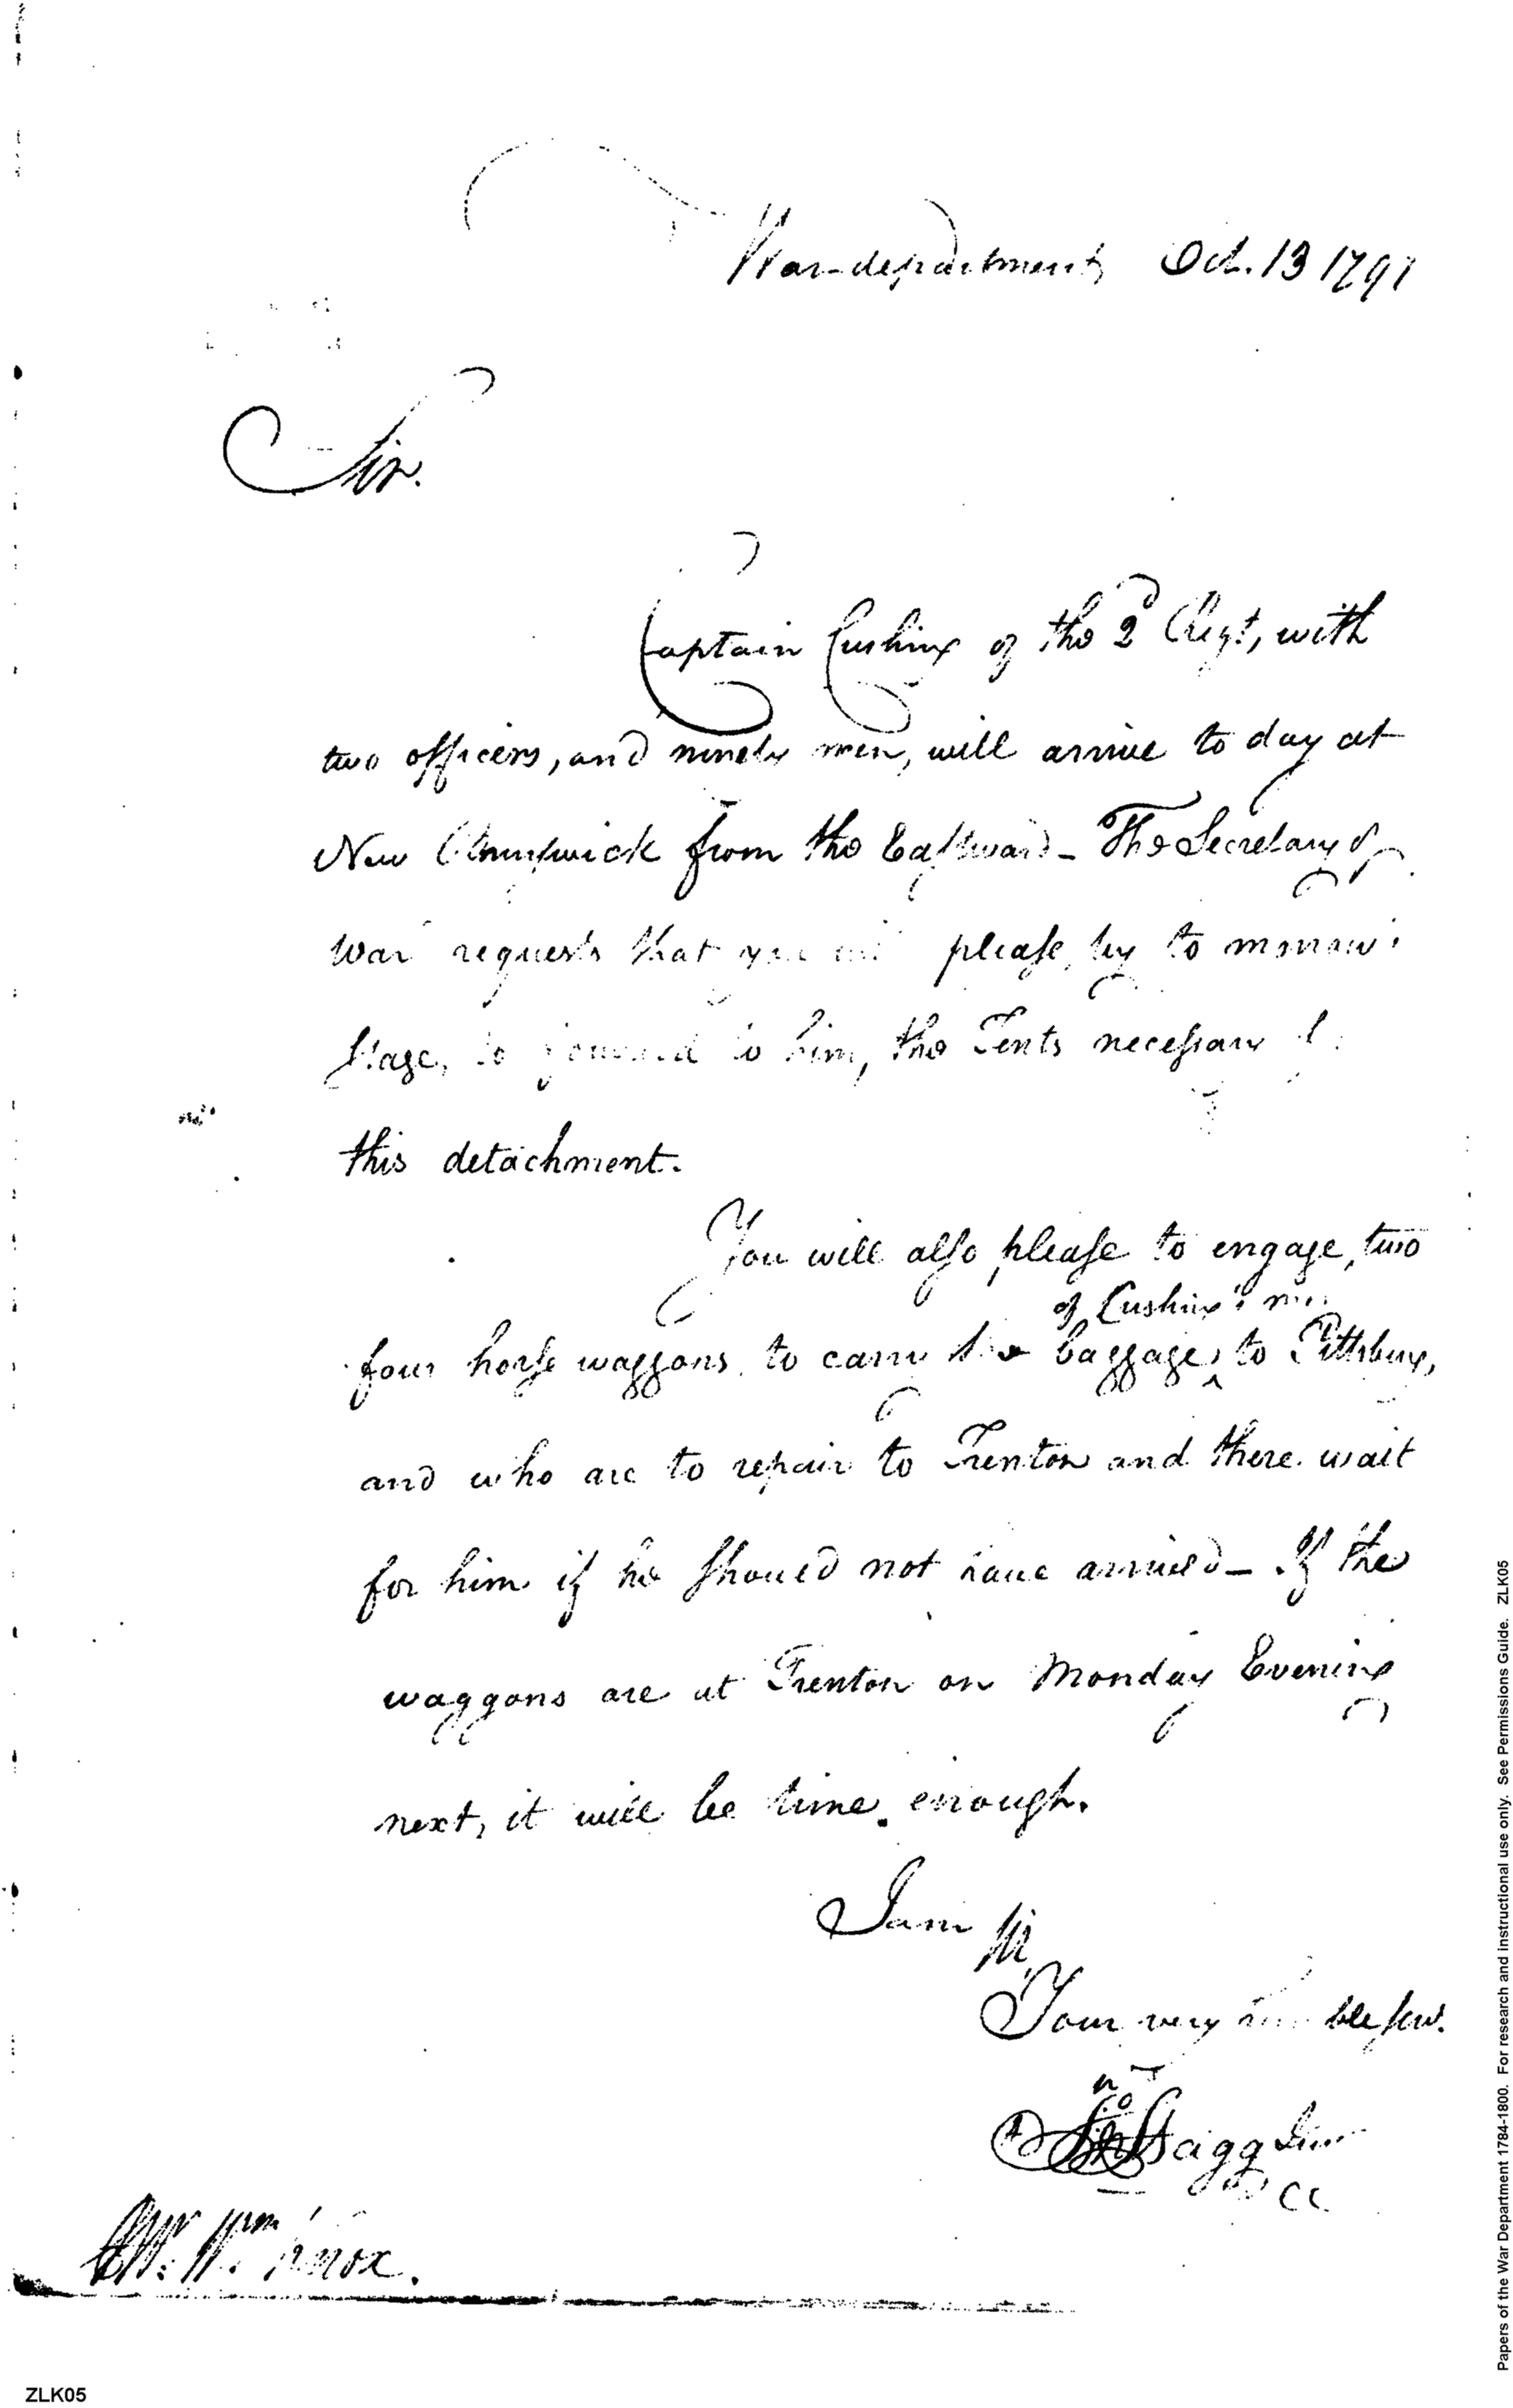 War-department Oct. 13 1791
Sir.
Captain Cushing of the 2d Regt, with
two officers, and ninety men, will arrive to day at
New Brunswick from the Eastward - The Secretary of
War requests that you will please, by to morrow's
Stage, to forward to him, the Tents necessary
this detachment.
You will also please to engage, two
of Cushing's men
four horse waggons, to carry the baggage, to Pittsburg,
and who are to repair to Trenton and there wait
for him if he should not have arrived - If the
waggons are at Trenton on Monday Evening
next, it will be time enough.
I am Sir
Your very humble serv.
Jno Stagg Junr
CC
Mr. Wm. Knox.
ZLK05
Papers of the War Department 1784-1800. For research and instructional use only. See Permissions Guide. ZLK05